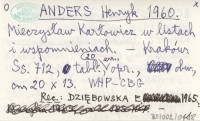 ANDERS Henryk 1960.
Mieczysław Karłowicz w listach
i wspomnieniach. - Kraków
(20 exm.)
Ss. 712, tabl., opr., obw.,
cm 20 x 13. WHP-CBG
Rec.: DZIĘBOWSKA E. 1965.